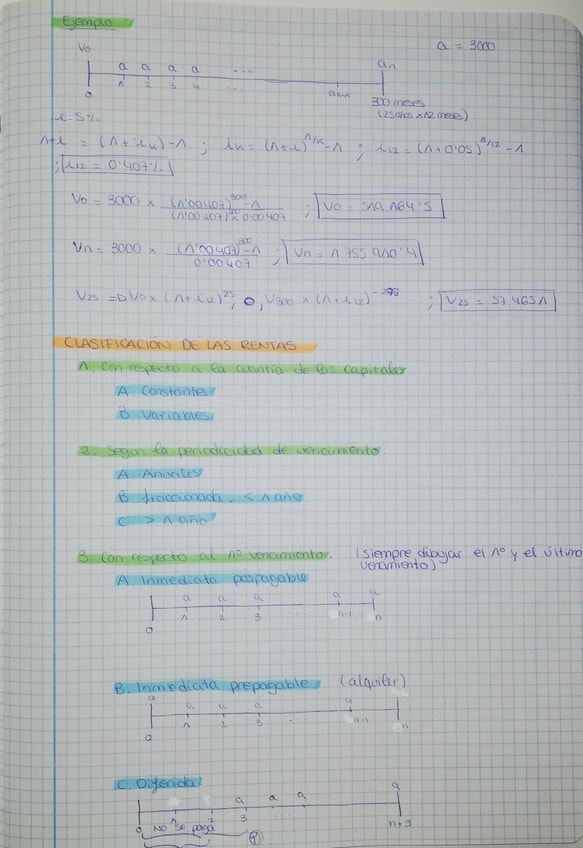 Ejemplo
a = 3000
V0 an
a a a a ...
0 1 2 3 4 ... an-1 300 meses
(25 años x 12 meses)
i = 5%
1+i = (1+ik)-1 ; ik = (1+i)^1/k -1 ; i12 = (1+0.05)^1/12 -1
; i12 = 0'407%
V0 = 3000 x (1'00407)^300 -1 / (1'00407)^300 x 0'00407 ; V0 = 519.164'5
Vn = 3000 x (1'00407)^300 -1 / 0'00407 ; Vn = 1.755.910'4
V25 => V0 x (1+i12)^25 ; o, V300 x (1+i12)^-275 ; V25 = 57.4651
CLASIFICACIÓN DE LAS RENTAS
1. Con respecto a la cuantía de los capitales
A Constantes
B Variables
2. Según la periodicidad de vencimiento.
A Anuales
B fraccionada. < 1 año
C > 1 año
3. Con respecto al nº vencimiento. (siempre dibujar el 1º y el último
vencimiento)
A. Inmediata pospagable
a a a a a
0 1 2 3 ... n-1 n
B. Inmediata prepagable (alquiler)
a a a a a
0 1 2 3 ... n-1 n
C. Diferida
a a a a
0 1 2 3 n+3
NO se paga